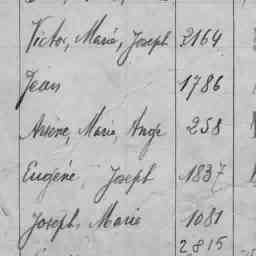 Victor, Marie, Joseph 2164
Jean 1786
Arsène, Marie, Ange 258
Eugène, Joseph 1837
Joseph, Marie 1081
2815